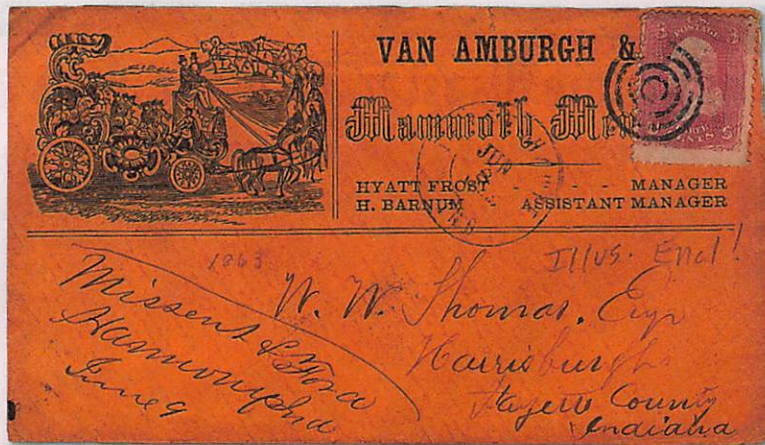 VAN AMBURGH &
Mammoth Men
HYATT FROST - - - - MANAGER
H. BARNUM ASSISTANT MANAGER
JUN
IND
POSTAGE
3 3
1863
Illus. Encl!
Missent & Ford
June 9
W. W. Thomas, Esqr
Harrisburgh
Fayette County
Indiana